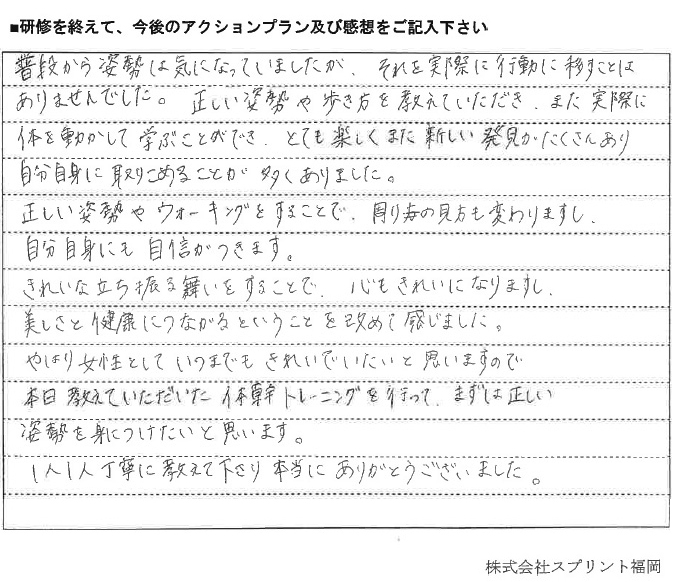 ■研修を終えて、今後のアクションプラン及び感想をご記入下さい
普段から姿勢は気になっていましたが、それを実際に行動に移すことは
ありませんでした。正しい姿勢や歩き方を教えていただき、また実際に
体を動かして学ぶことができ、とても楽しくまた新しい発見がたくさんあり
自分自身に取りこめることが多くありました。
正しい姿勢やウォーキングをすることで、周りの見方も変わりますし、
自分自身にも自信がつきます。
きれいな立ち振る舞いをすることで、心もきれいになりますし、
美しさと健康につながるということを改めて感じました。
やはり女性としていつまでもきれいでいたいと思いますので
本日教えていただいた体幹トレーニングを行って、まずは正しい
姿勢を身につけたいと思います。
1人1人丁寧に教えて下さり本当にありがとうございました。
株式会社スプリント福岡